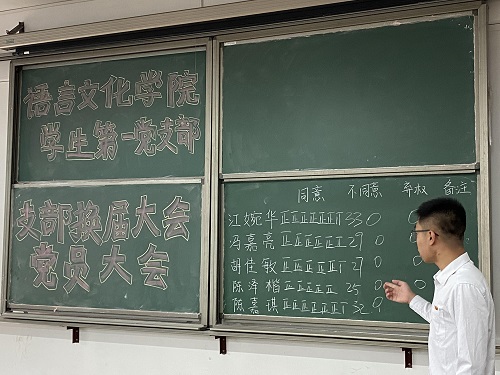 语言文化学院
学生第一党支部
支部换届大会
党员大会
同意 不同意 弃权 备注
江婉华 正正正正正正 33 0 0
冯嘉亮 正正正正正 27 0
胡佳敏 正正正正正 27 0
陈泽楷 正正正正正 25 0
陈嘉琪 正正正正正正 32 0